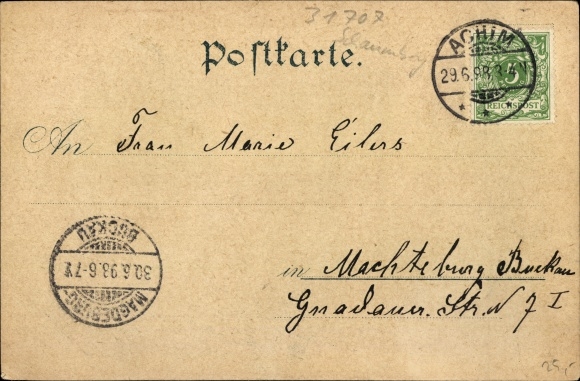 31707
Postkarte.
ACHIM
29.6.98.3-4
5
REICHSPOST
An Frau Marie Eilers
MAGDEBURG
30.6.98.6-7
BUCKAU
in Machteburg Buckau
Gnadauer. Str. N 7 I
25,-